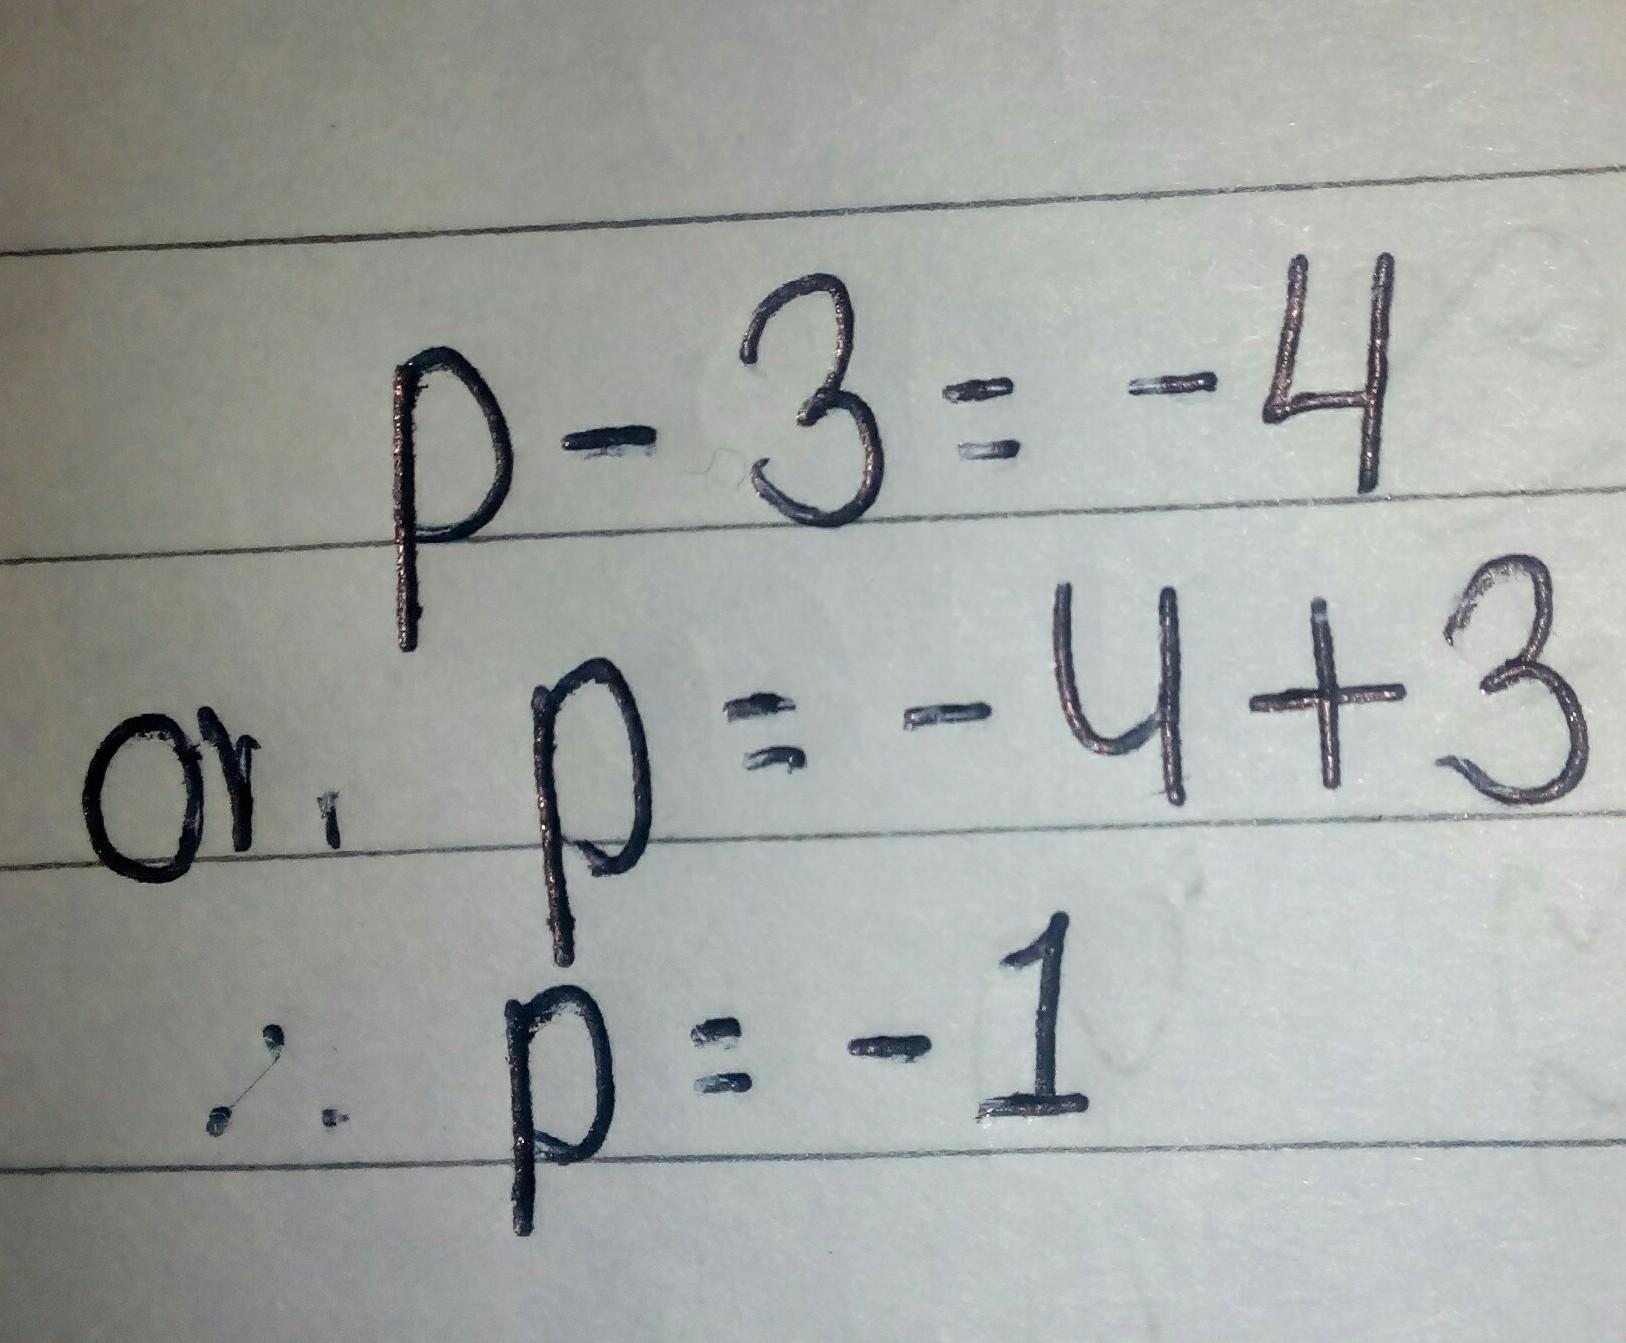 p - 3 = - 4
or, p = - 4 + 3
∴ p = - 1